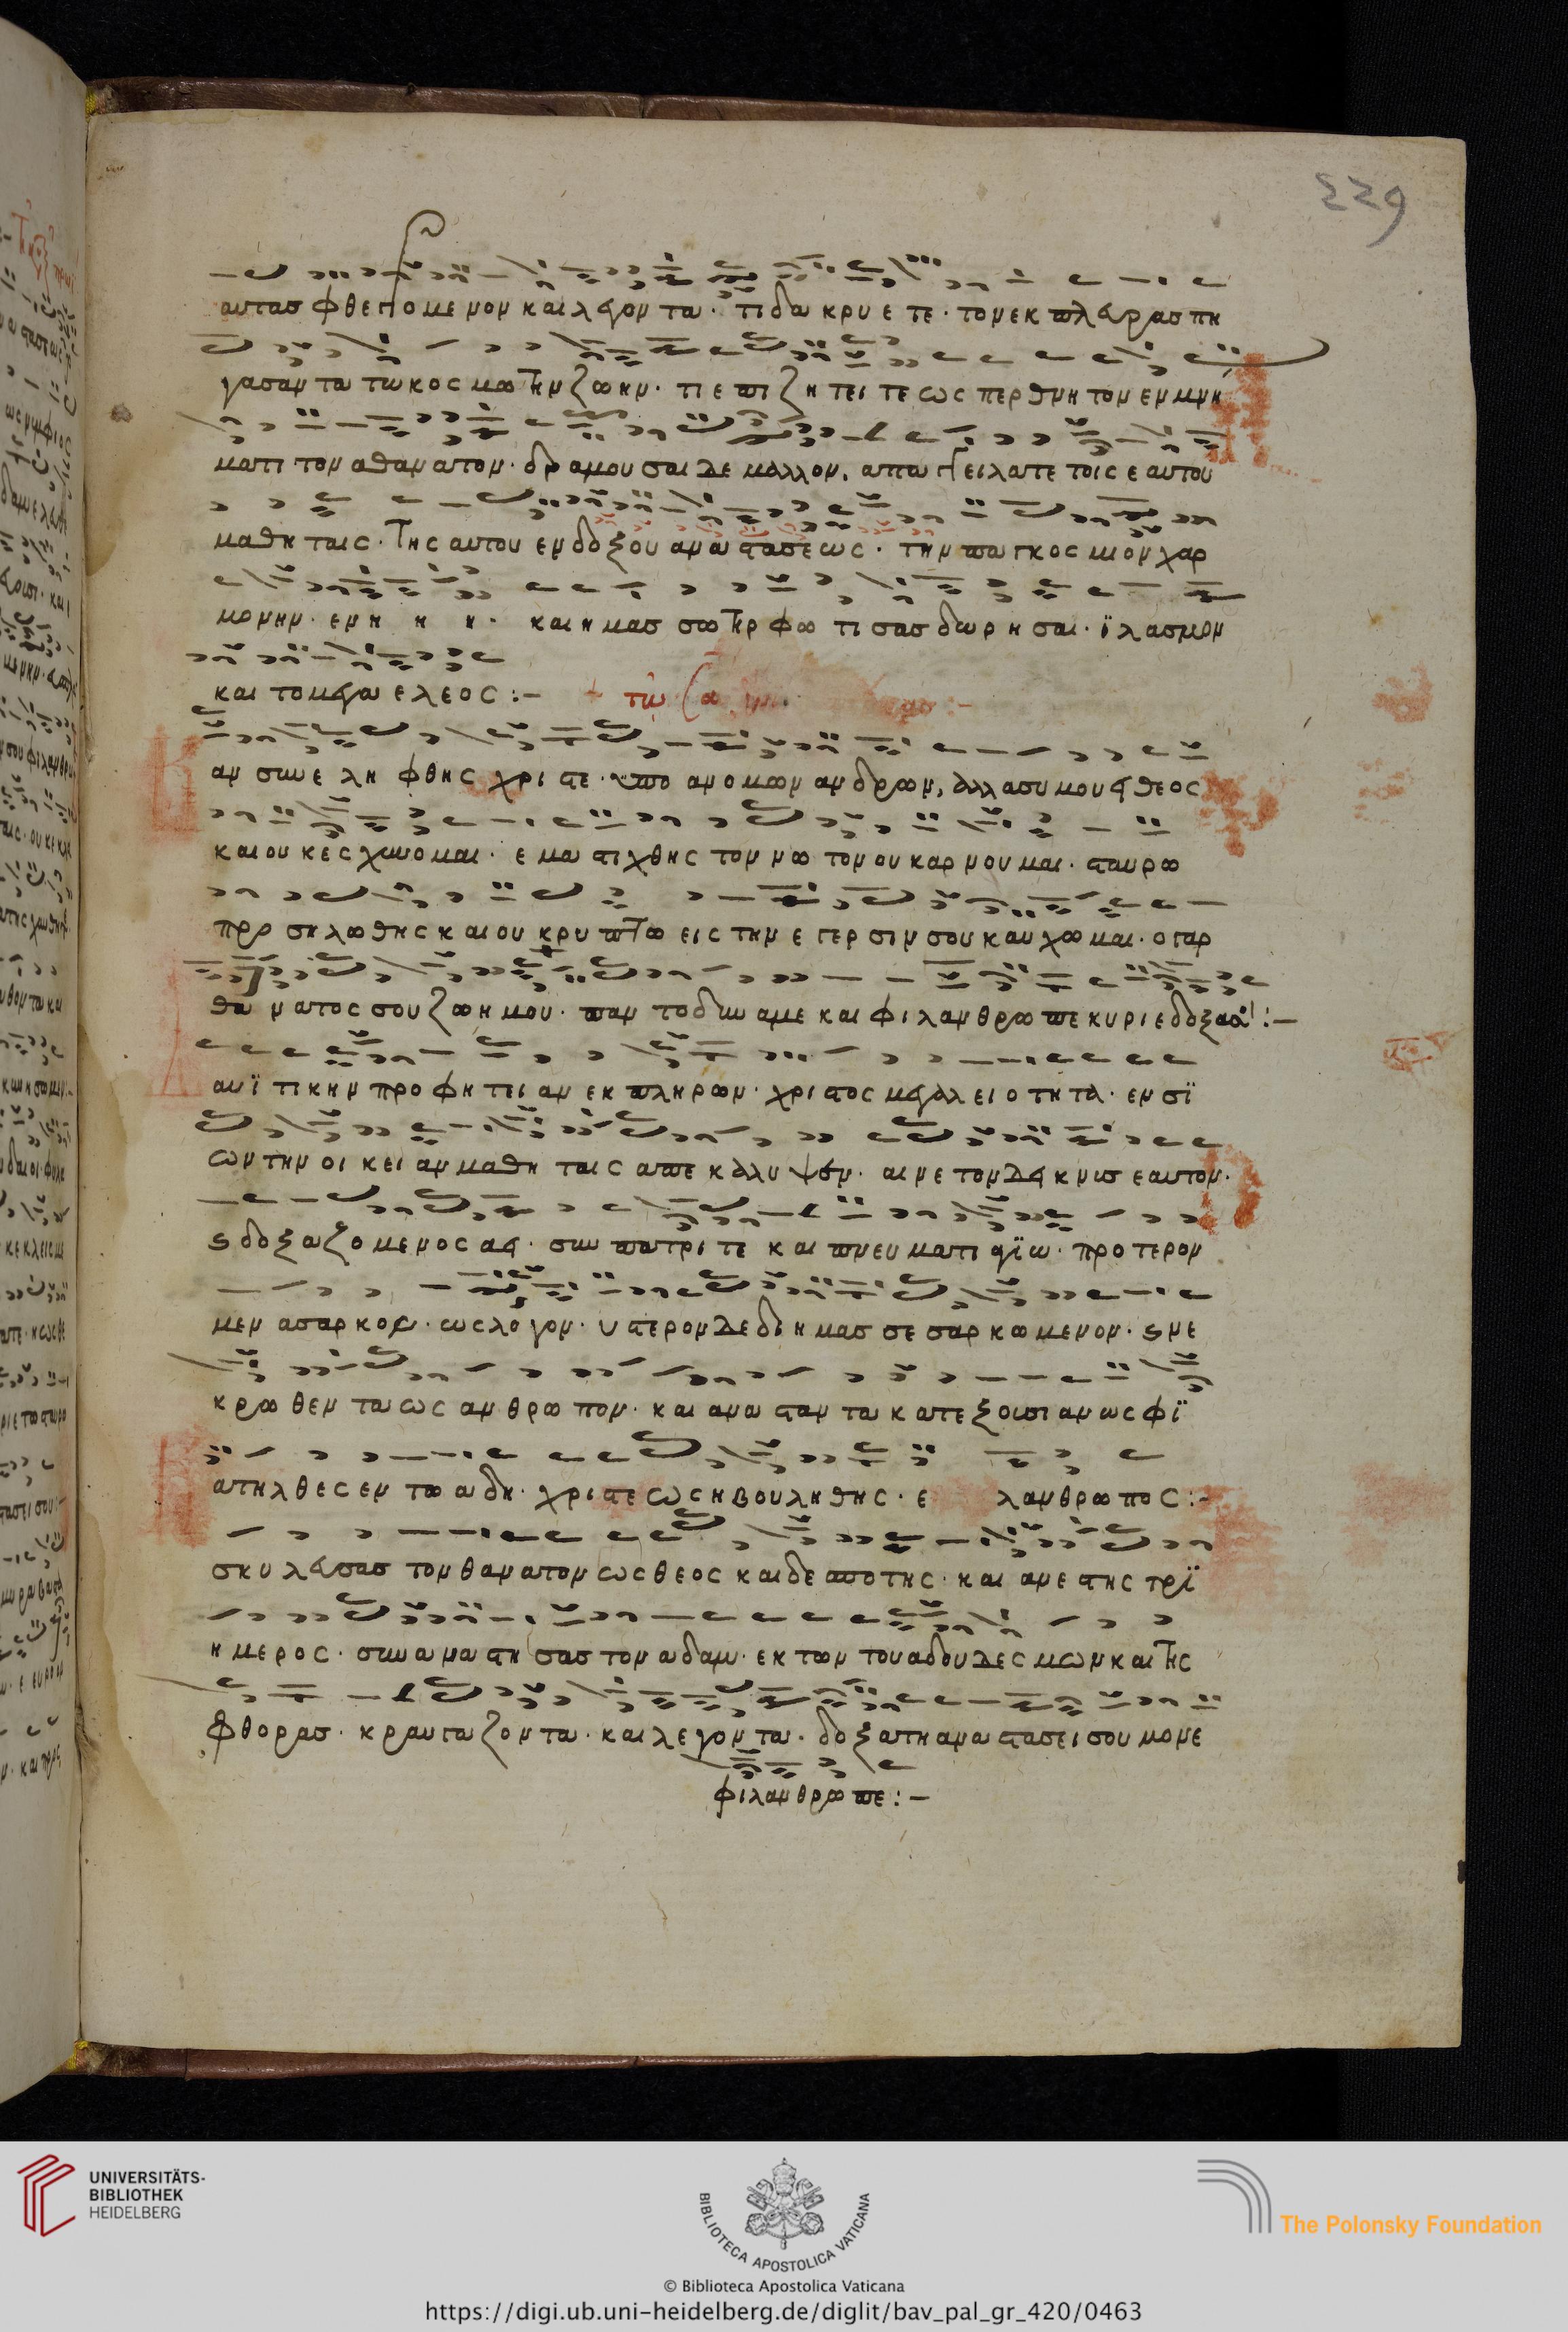 229
αυτασ φθεγγομενον και λεγοντα · τι δα κρυ ε τε · τον εκ πλευρασ πη
γασαντα τω κοσμω την ζωην · τι ε πι ζη τει τε ως περ θνητον εν μνη
ματι τον αθανατον · δραμουσαι δε μαλλον, απαγγειλατε τοις εαυτου
μαθη ταις · της αυτου ενδοξου αναστασεως · την παγκοσμιον χαρ
μονην · εν η η η · και ημασ σωτηρ φω τι σασ δωρησαι · ϊλασμον
και το μεγα ελεος :–
τω
αν συνελη φθης χριστε · υπο ανομων ανδρων, αλλα συ μου ει θεος
και ουκ εσχυνομαι · εμαστιχθης τον νωτον ουκ αρνουμαι · σταυρω
προσηλωθης και ου κρυπτω εις την εγερσιν σου καυχωμαι · ο γαρ
θανατος σου ζωη μου · παντοδυναμε και φιλανθρωπε κυριε δοξα σοι :–
αυϊτικην προφητειαν εκπληρων · χριστος μεγαλειοτητα · εν σϊ
ων την οικειαν μαθηταις απεκαλυψεν · αινετον δεικνυσ εαυτον ·
ς δοξαζομενος αει · συν πατρι τε και πνευματι αγϊω · προτερον
μεν ασαρκος · ως λογον · υστερον δε δι ημασ σεσαρκωμενον · ς νε
κρωθεντα ως ανθρωπον · και ανασταντα κατ εξουσιαν ως φϊ
ατηλθες εν τω αδη · χριστε ως ηβουληθης · ε λανθρωπος :–
σκυλευσασ τον θανατον ως θεος και δεσποτης · και ανεστης τρϊ
ημερος · συναναστησασ τον αδαμ · εκ των του αδου δεσμων και της
φθορασ · κραυγαζοντα · και λεγοντα · δοξα τη αναστασει σου μονε
φιλανθρωπε :–
UNIVERSITÄTS-
BIBLIOTHEK
HEIDELBERG
BIBLIOTECA APOSTOLICA VATICANA
The Polonsky Foundation
© Biblioteca Apostolica Vaticana
https://digi.ub.uni-heidelberg.de/diglit/bav_pal_gr_420/0463